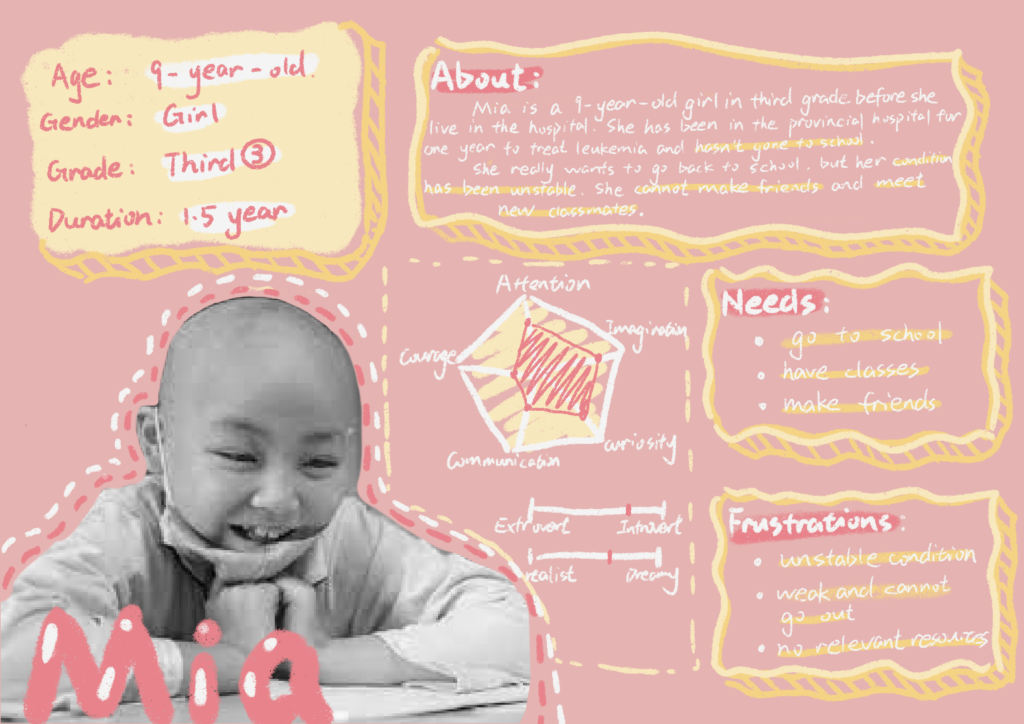 Age: 9-year-old.
Gender: Girl
Grade: Third ③
Duration: 1.5 year
About:
Mia is a 9-year-old girl in third grade before she
live in the hospital. She has been in the provincial hospital for
one year to treat leukemia and hasn't gone to school.
She really wants to go back to school. but her condition
has been unstable. She cannot make friends and meet
new classmates.
Attention
Imagination
Courage
Curiosity
Communication
Extrovert Introvert
realist Dreamy
Needs:
• go to school
• have classes
• make friends
Frustrations:
• unstable condition
• weak and cannot
go out
• no relevant resources
Mia